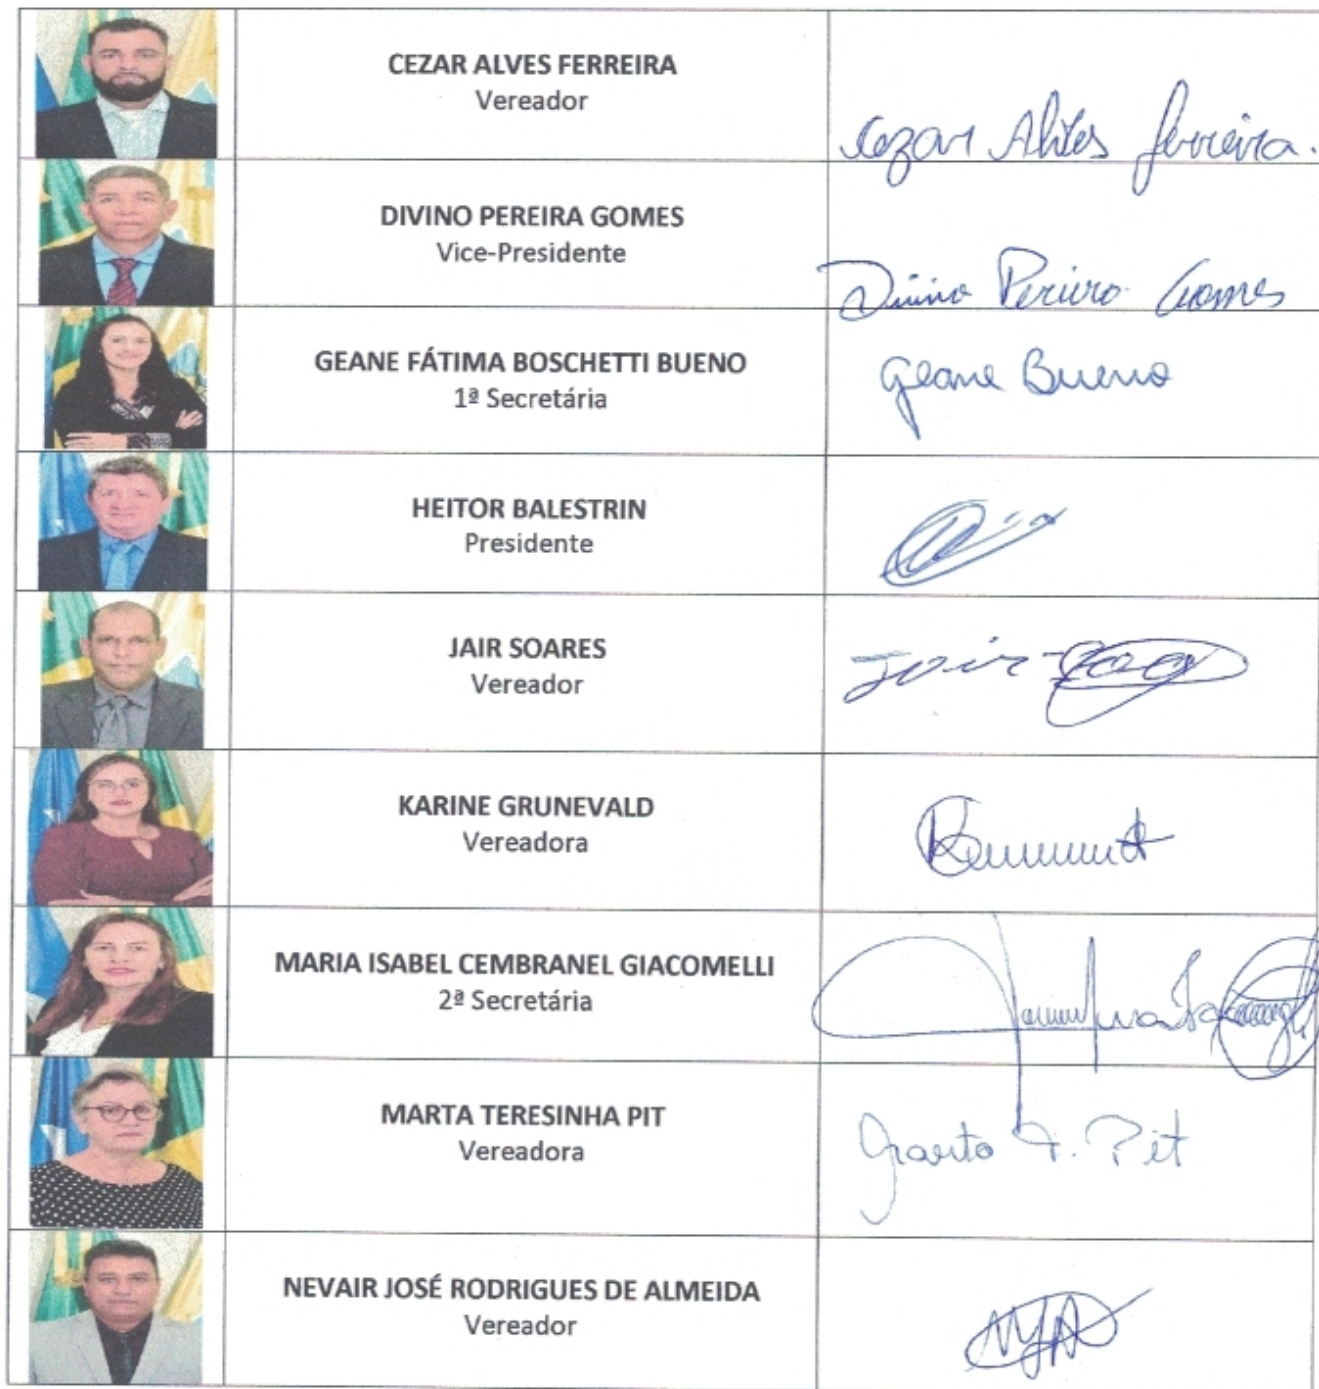 CEZAR ALVES FERREIRA
Vereador
Cezar Alves Ferreira.
DIVINO PEREIRA GOMES
Vice-Presidente
Divino Pereira Gomes
GEANE FÁTIMA BOSCHETTI BUENO
1ª Secretária
Geane Bueno
HEITOR BALESTRIN
Presidente
JAIR SOARES
Vereador
Jair
KARINE GRUNEVALD
Vereadora
MARIA ISABEL CEMBRANEL GIACOMELLI
2ª Secretária
MARTA TERESINHA PIT
Vereadora
Marta T. Pit
NEVAIR JOSÉ RODRIGUES DE ALMEIDA
Vereador